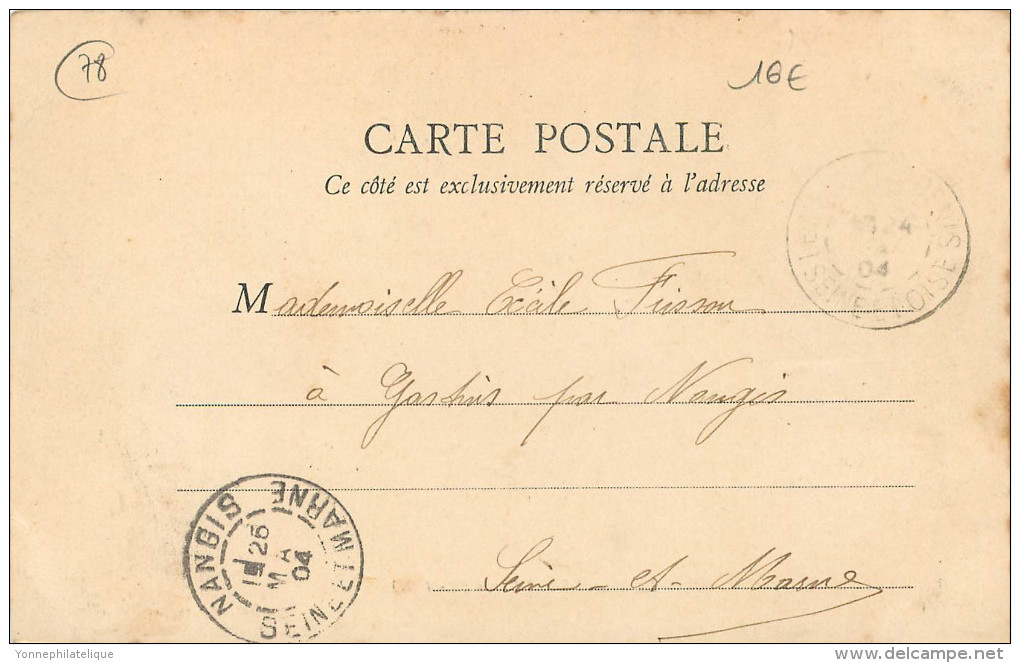 78
16€
CARTE POSTALE
Ce côté est exclusivement réservé à l'adresse
24
04
SEINE ET OISE
Mademoiselle Cécile Fusson
à Gastins par Nangis
NANGIS
25
MA
04
SEINE ET MARNE
Seine-et-Marne
Yonnephilatelique
delcampe.net